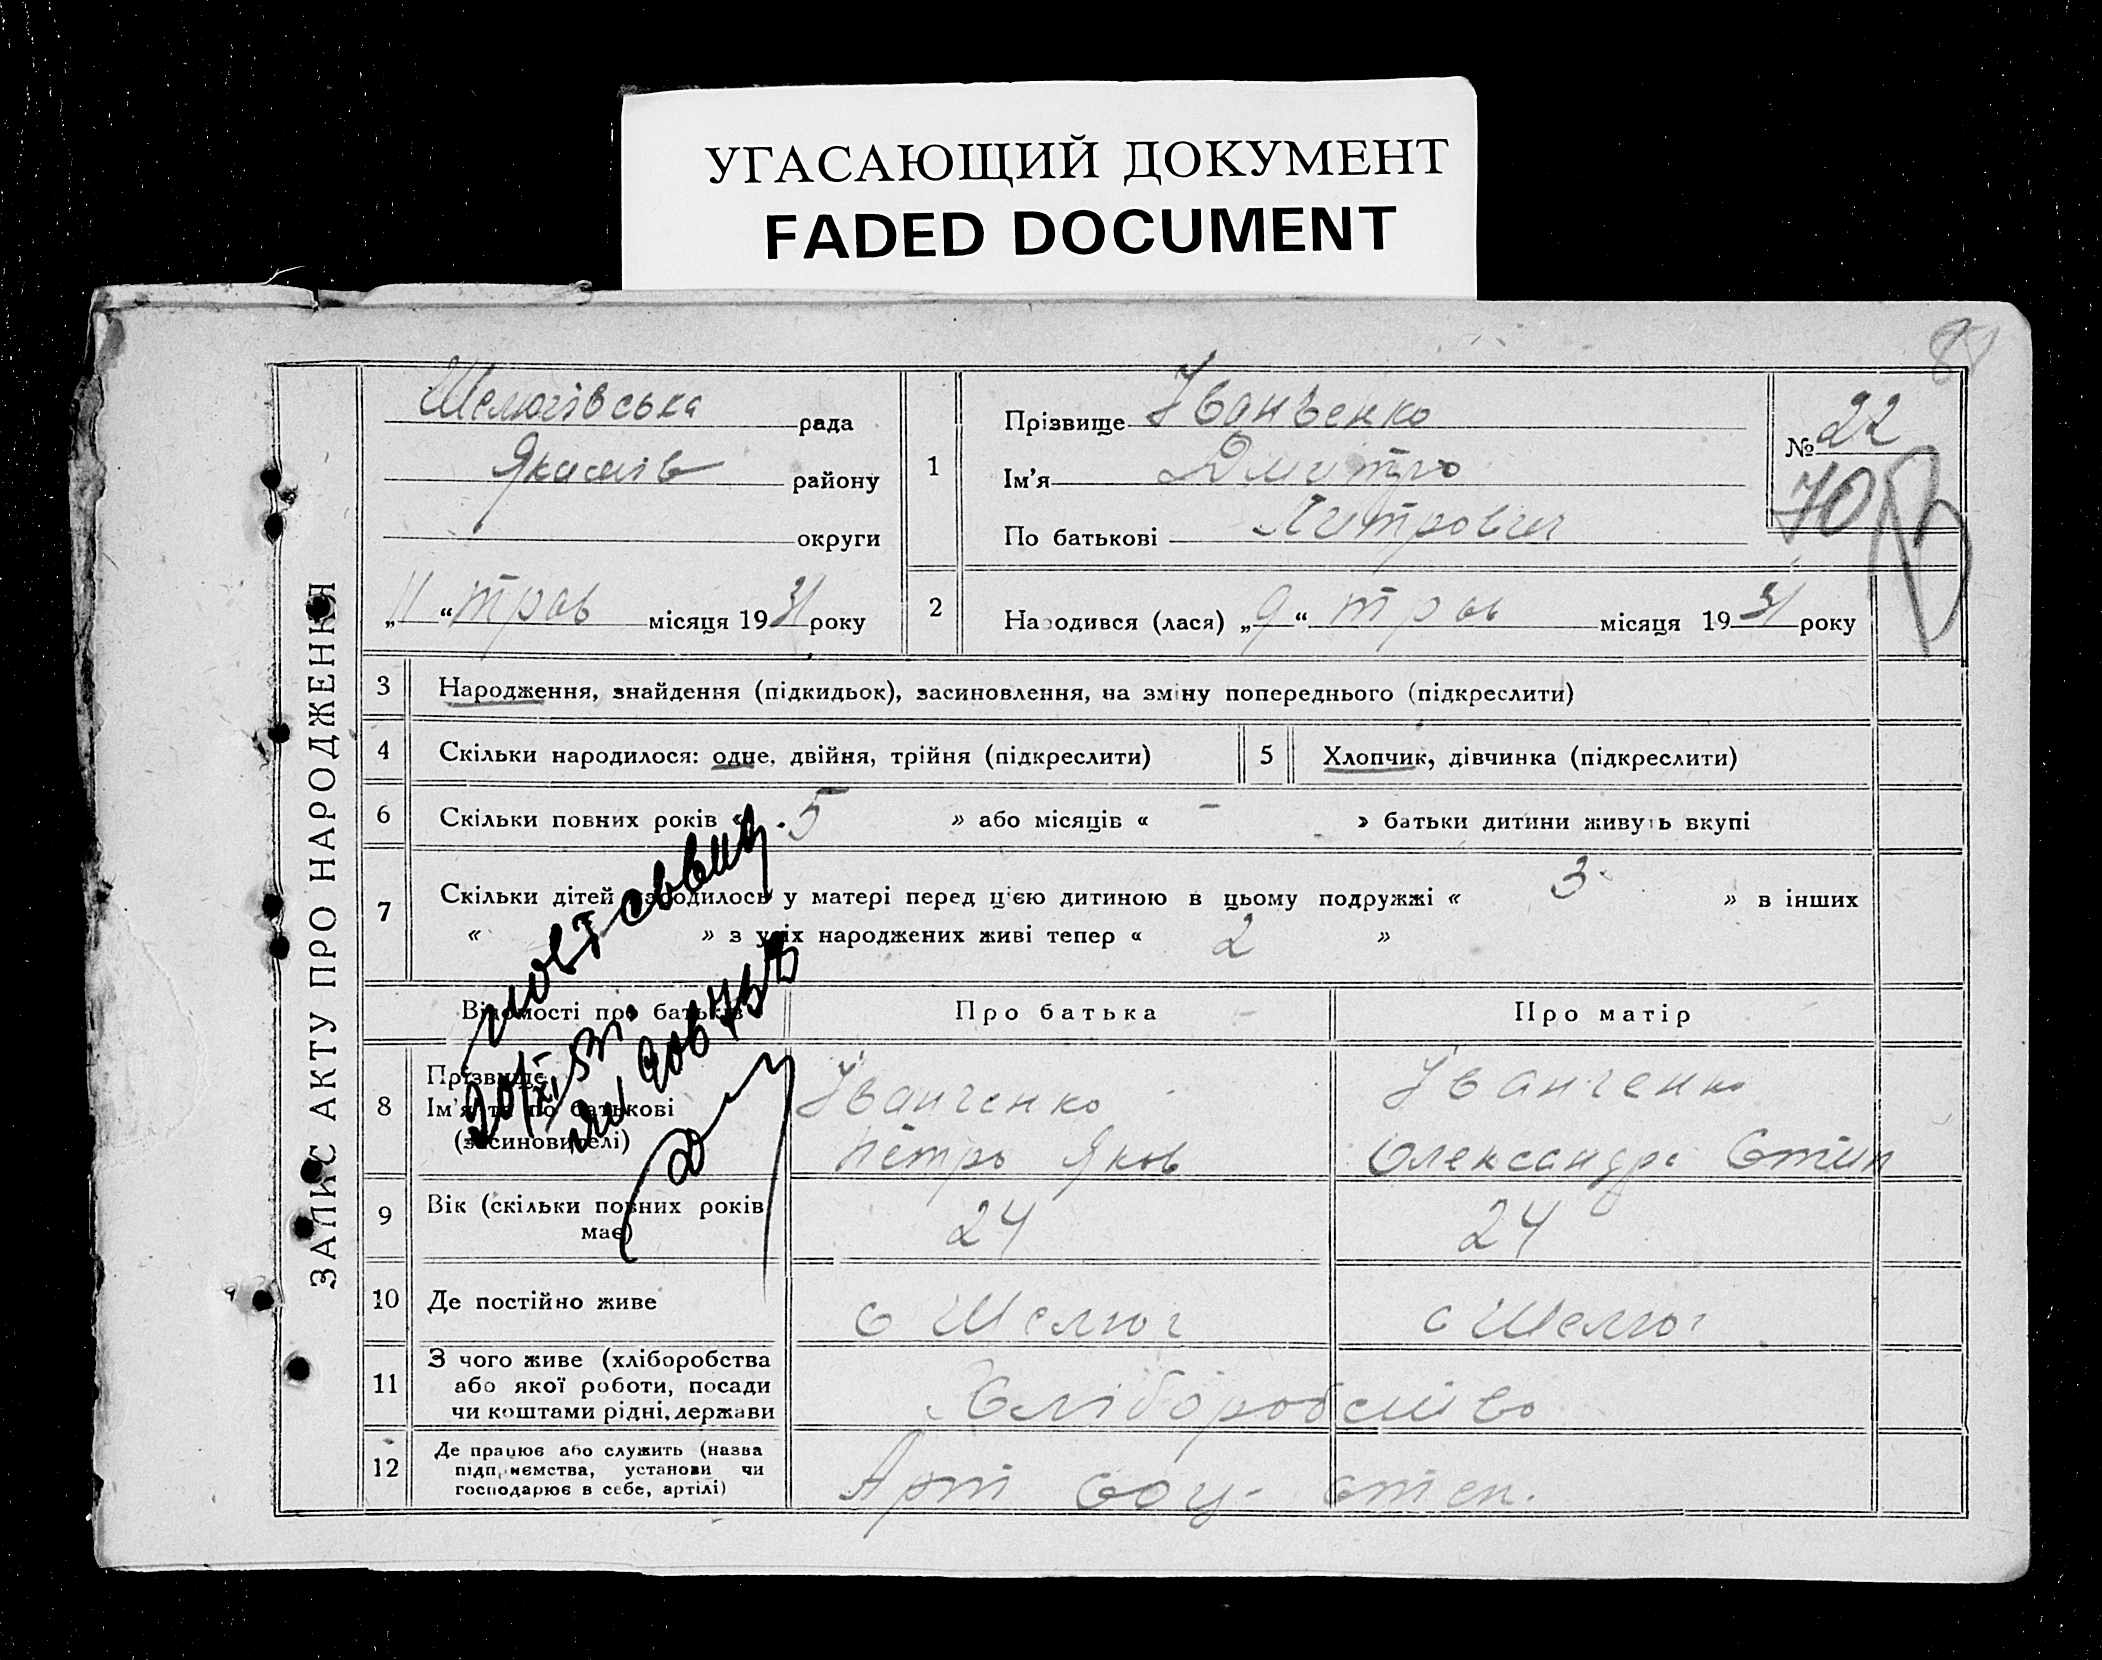 УГАСАЮЩИЙ ДОКУМЕНТ
FADED DOCUMENT
ЗАПИС АКТУ ПРО НАРОДЖЕННЯ
Шелюгівська рада
Якимів району
округи
„11“ трав місяця 1931 року
1
Прізвище Іванченко
Ім'я Дмитро
По батькові Петрович
№ 22
70
2
Народився (лася) „9“ трав місяця 1931 року
3 Народження, знайдення (підкидьок), засиновлення, на зміну попереднього (підкреслити)
4 Скільки народилося: одне, двійня, трійня (підкреслити)
5 Хлопчик, дівчинка (підкреслити)
6 Скільки повних років « 5 » або місяців « – » батьки дитини живуть вкупі
7 Скільки дітей народилось у матері перед ц'єю дитиною в цьому подружжі « 3 » в інших
« » з усіх народжених живі тепер « 2 »
Відомості про батьків Про батька Про матір
8 Прізвище Іванченко Іванченко
Ім'я та по батькові Петро Яков Олександра Степ
(засиновителі)
9 Вік (скільки повних років 24 24
має)
10 Де постійно живе с Шелюг с Шелюг
11 З чого живе (хліборобства
або якої роботи, посади Хліборобство
чи коштами рідні, держави
12 Де працює або служить (назва
підприємства, установи чи Арт Соц- степ.
господарює в себе, артілі)